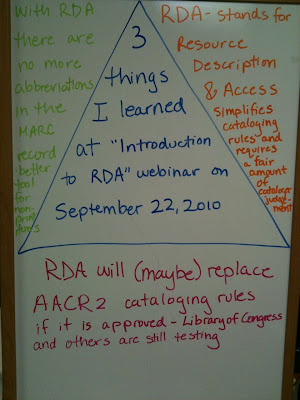 With RDA
there are
no more
abbreviations
in the
MARC
record
better
tool
for
non-
print
3
things
I learned
at "Introduction
to RDA" webinar on
September 22, 2010
RDA - stands for
Resource
Description
& Access
simplifies
cataloging
rules and
requires
a fair
amount
of
cataloger
judge-
ment
RDA will (maybe) replace
AACR2 cataloging rules
if it is approved - Library of Congress
and others are still testing